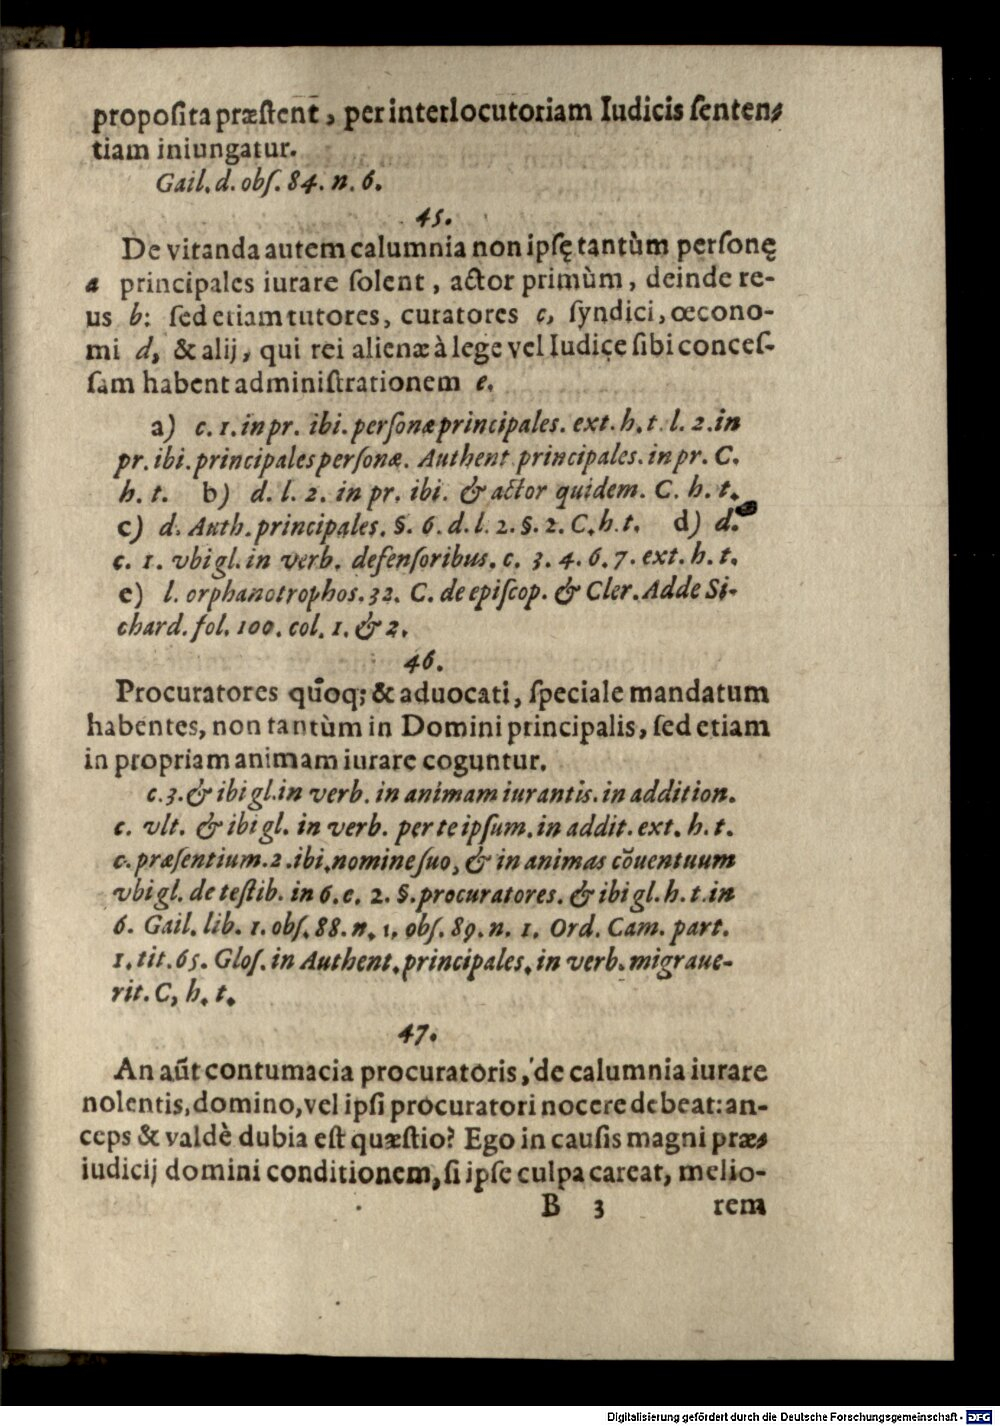 propoſita præſtent, per interlocutoriam Iudicis ſenten-
tiam iniungatur.
Gail. d. obſ. 84. n. 6.
45.
De vitanda autem calumnia non ipſę tantùm perſonę
a principales iurare ſolent, actor primùm, deinde re-
us b: ſed etiam tutores, curatores c, ſyndici, œcono-
mi d, & alij, qui rei alienæ à lege vel Iudice ſibi conceſ-
ſam habent adminiſtrationem e.
a) c. 1. in pr. ibi. perſonæ principales. ext. h. t. l. 2. in
pr. ibi. principales perſonæ. Authent principales. in pr. C.
h. t. b) d. l. 2. in pr. ibi. & actor quidem. C. h. t.
c) d. Auth. principales. §. 6. d. l. 2. §. 2. C. h. t. d) d.
c. 1. vbi gl. in verb. defenſoribus. c. 3. 4. 6. 7. ext. h. t.
e) l. orphanotrophos. 32. C. de epiſcop. & Cler. Adde Si-
chard. fol. 100. col. 1. & 2.
46.
Procuratores quōq; & aduocati, ſpeciale mandatum
habentes, non tantùm in Domini principalis, ſed etiam
in propriam animam iurare coguntur.
c. 3. & ibi gl. in verb. in animam iurantis. in addition.
c. vlt. & ibi gl. in verb. per te ipſum. in addit. ext. h. t.
c. præſentium. 2. ibi. nomine ſuo, & in animas cōuentuum
vbi gl. de teſtib. in 6. c. 2. §. procuratores. & ibi gl. h. t. in
6. Gail. lib. 1. obſ. 88. n. 1. obſ. 89. n. 1. Ord. Cam. part.
1. tit. 65. Gloſ. in Authent. principales. in verb. migraue-
rit. C, h. t.
47.
An aūt contumacia procuratoris, de calumnia iurare
nolentis, domino, vel ipſi procuratori nocere debeat: an-
ceps & valdè dubia eſt quæſtio? Ego in cauſis magni præ-
iudicij domini conditionem, ſi ipſe culpa careat, melio-
B 3 rem
Digitalisierung gefördert durch die Deutsche Forschungsgemeinschaft - DFG